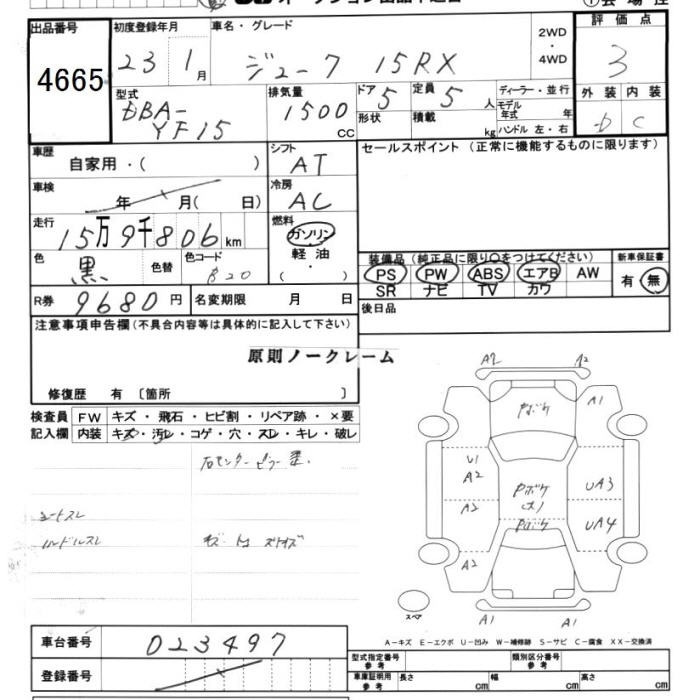 出品番号
4665
初度登録年月
23 1月
車名・グレード
ジューク 15RX
2WD
・
4WD
評価点
3
外装 内装
b C
型式
DBA-
YF15
排気量
1500
CC
ドア
5
定員
5人
形状
積載
kg
ディーラー・並行
モデル
年式
年
ハンドル 左・右
車歴
自家用・( )
シフト
AT
セールスポイント (正常に機能するものに限ります)
車検
年 月( 日)
冷房
AC
走行
15万9千806km
燃料
ガソリン
軽油
・
( )
色
黒
色替
色コード
B20
装備品 (純正品に限り○をつけてください)
新車保証書
PS PW ABS エアB AW
SR ナビ TV カワ
有・無
R券
9680円
名変期限 月 日
後日品
注意事項申告欄(不具合内容等は具体的に記入して下さい)
原則ノークレーム
修復歴 有 〔箇所 〕
検査員
記入欄
FW キズ・飛石・ヒビ割・リペア跡・×要
内装 キズ・汚レ・コゲ・穴・スレ・キレ・破レ
シートスレ
ハンドルスレ
A2 A2
A1
U1
A2
A2
A2
Pボケ
Pボケ
Pボケ
UA3
UA4
A1 A1
スペア
A-キズ E-エクボ U-凹み W-補修跡 S-サビ C-腐食 XX-交換済
車台番号
023497
登録番号
型式指定番号
参考
類別区分番号
参考
車庫証明用
参考
長さ cm 幅 cm 高さ cm